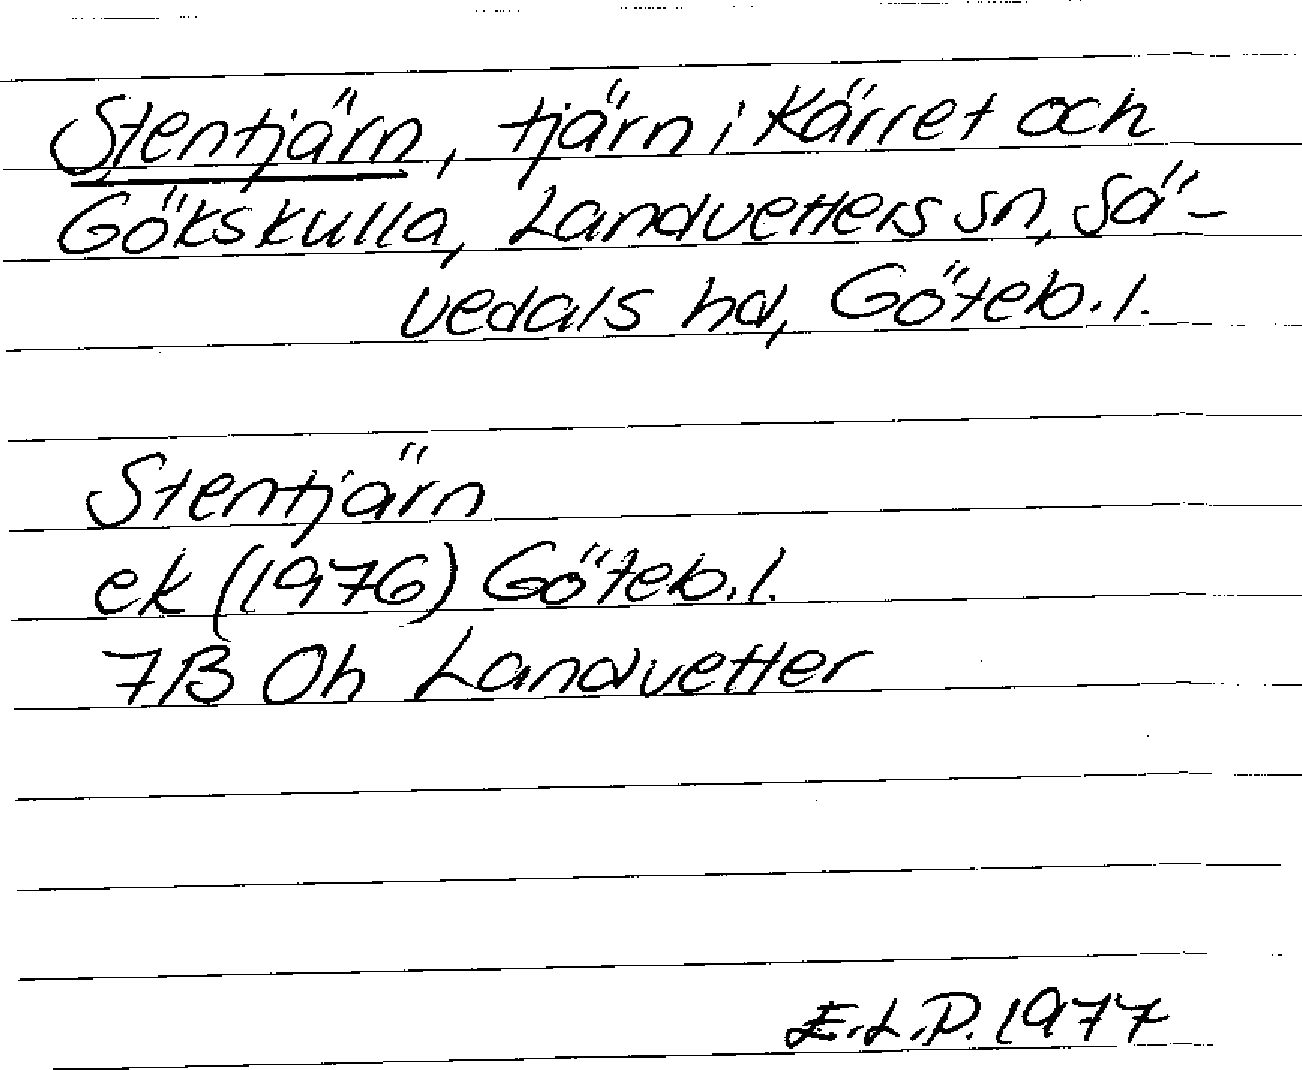 Stentjärn, tjärn i Kärret och
Gökskulla, Landvetters sn, Sä-
vedals hd, Göteb. l.
Stentjärn
ek (1976) Göteb. l.
7B 0h Landvetter
E.L.P. 1977